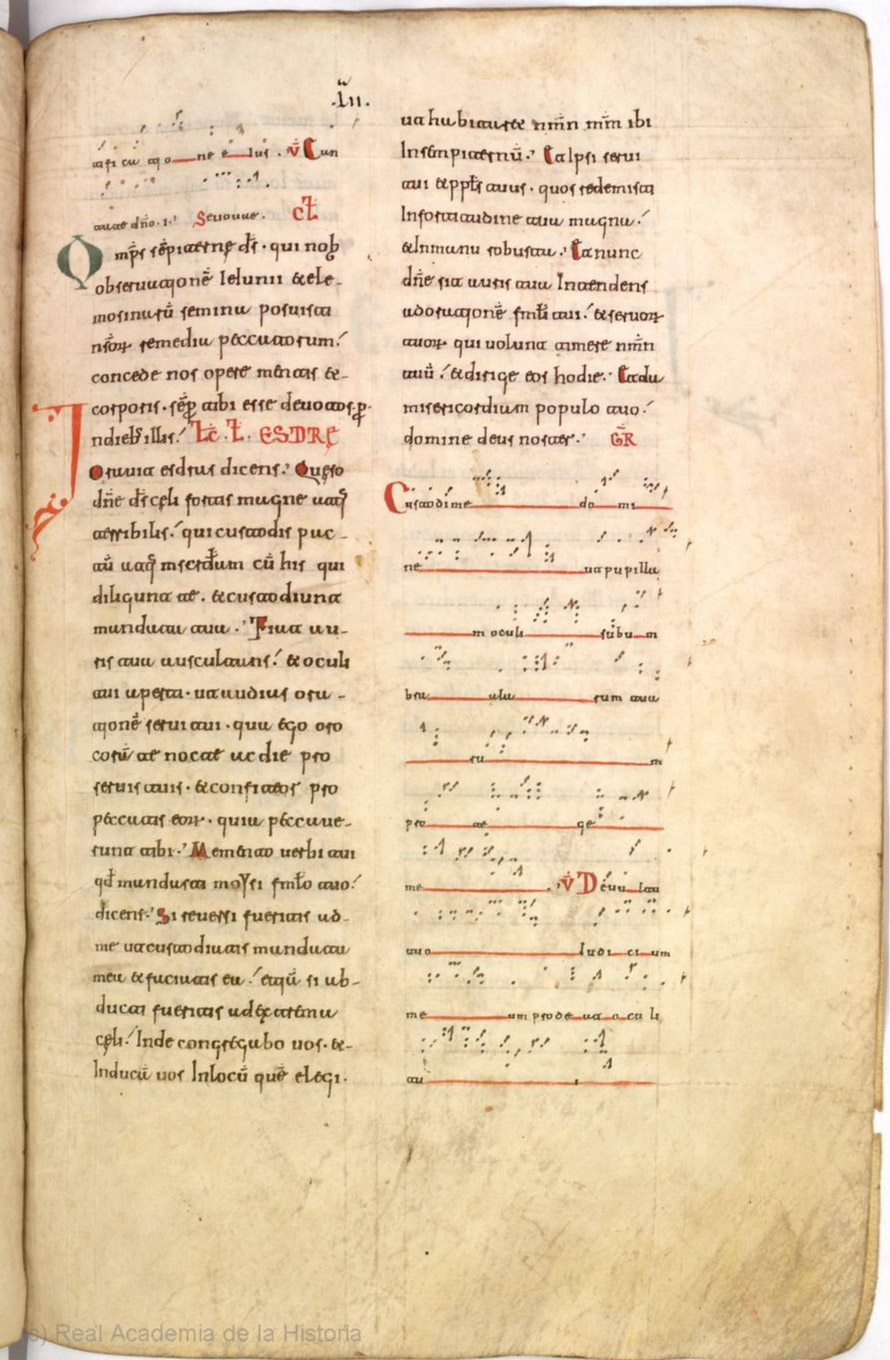 .Lii.
tificatio ne e ius . V̄ Can
tate dño .1. Seuouae. CT̄
Omp̄s sēpiterne d̄s · qui nob
obseruationē Ieiunii & ele-
mosinarū semina posuisti
nr̄oꝝ remedia peccatorum.
concede nos opere mentis &-
corporis · sēp tibi esse deuotos. p
Indieb illis. Lc̄. L. ESDRE
Orauit esdras dicens. Queso
dn̄e d̄s celi fortis magne atq
terribilis. qui custodis pac-
tū atq misc̄diam cū his qui
diligunt te . & custodiunt
mandata tua . Fiat au-
ris tua auscultans. & oculi
tui aperti · ut audias ora-
tionē serui tui · qua ego oro
corā te nocte ac die pro
seruis tuis · & confiteor pro
peccatis eoꝝ · quia peccaue-
runt tibi . Memento uerbi tui
qd̄ mandasti moysi fmlo tuo.
dicens. Si reuersi fueritis ad-
me ut custodiatis mandata
mea & faciatis ea. etiā si ab-
ducti fueritis ad extrema
celi. Inde congregabo uos. &-
Inducā uos Inlocū quē elegi.
ut habitaret nm̄n mm̄ ibi
Insempiternū. Et ipsi serui
tui & ppl̄s tuus · quos redemisti
Infortitudine tua magna.
& Inmanu robusta. Et nunc
dn̄e sit auris tua Intendens
adorationē fml̄i tui. & seruoꝝ
tuoꝝ qui uolunt timere nm̄n
tuū. & dirige eos hodie. Et da
misericordiam populo tuo.
domine deus noster. GR̄
Custodi me do mi
ne ut pupilla
m oculi sub u m
bra ala rum tua
ru m
pro te ge
me . V̄ De uu l tu
tuo Iudi ci um
me um prode at o cu li
tu i
(c) Real Academia de la Historia